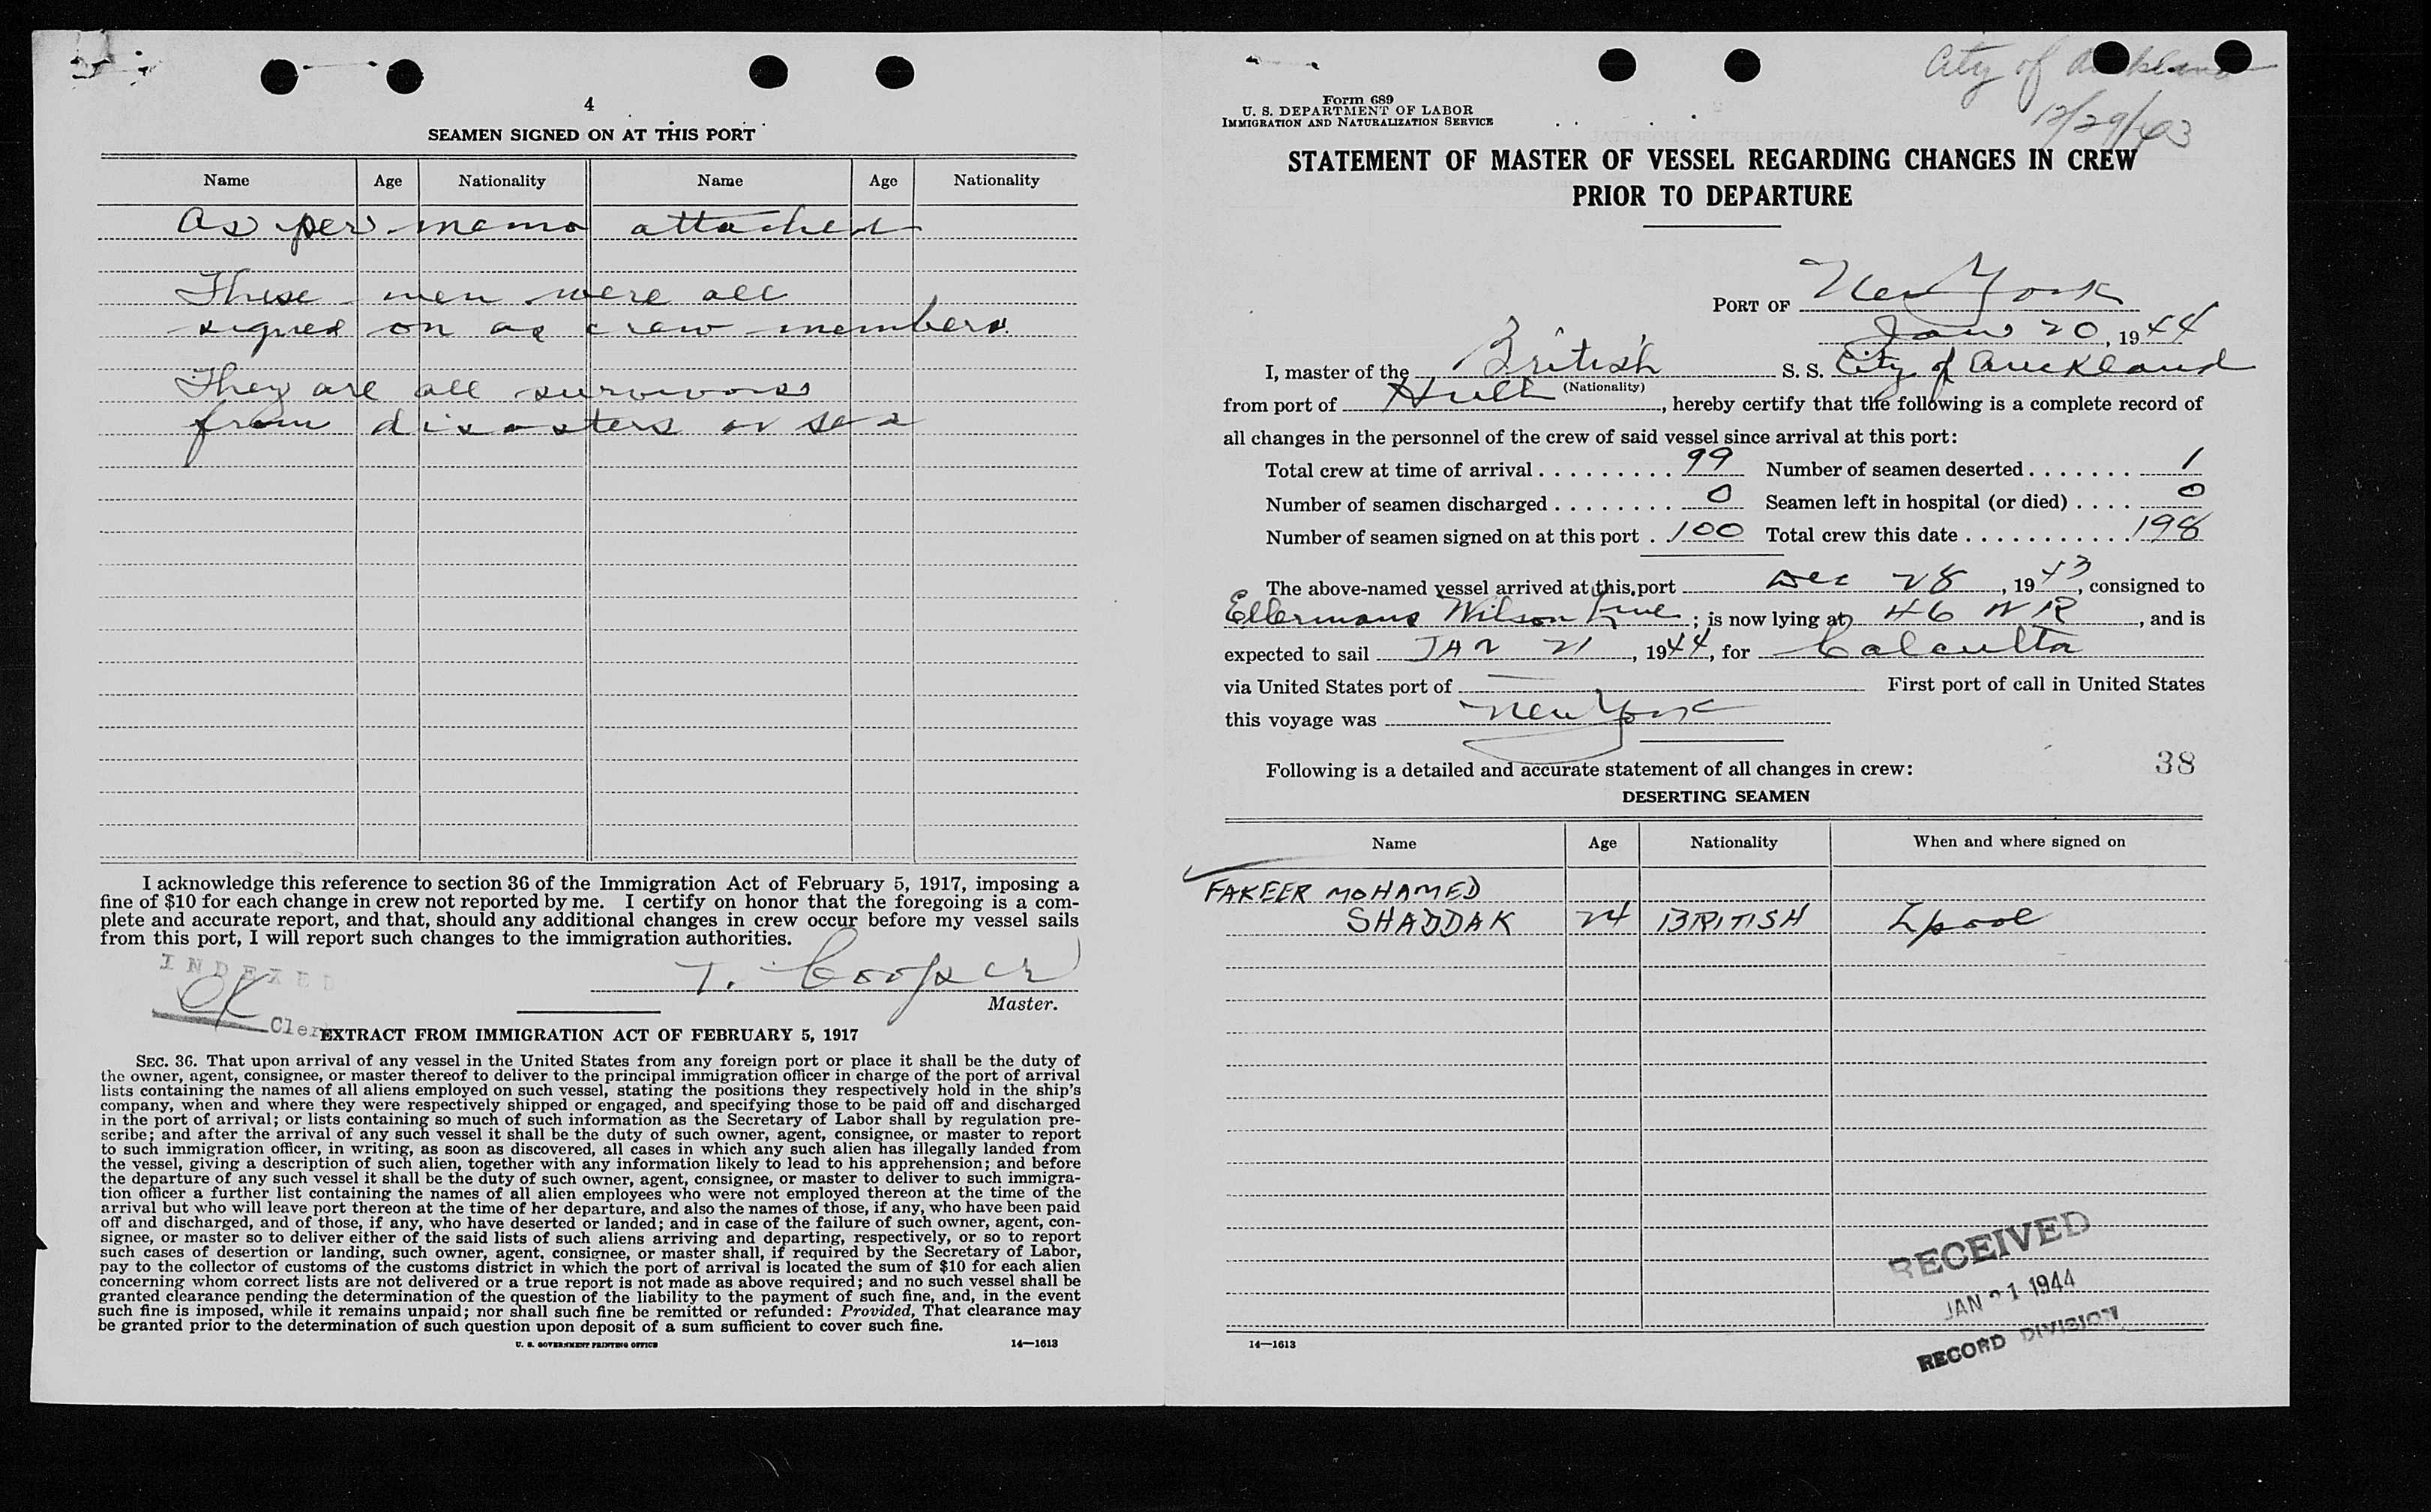 4
SEAMEN SIGNED ON AT THIS PORT
Name Age Nationality Name Age Nationality
As per memo attached
These men were all
signed on as crew members.
They are all survivors
from disasters at sea
I acknowledge this reference to section 36 of the Immigration Act of February 5, 1917, imposing a
fine of $10 for each change in crew not reported by me. I certify on honor that the foregoing is a com-
plete and accurate report, and that, should any additional changes in crew occur before my vessel sails
from this port, I will report such changes to the immigration authorities.
INDEXED
T. Cooper
Master.
Clerk
EXTRACT FROM IMMIGRATION ACT OF FEBRUARY 5, 1917
SEC. 36. That upon arrival of any vessel in the United States from any foreign port or place it shall be the duty of
the owner, agent, consignee, or master thereof to deliver to the principal immigration officer in charge of the port of arrival
lists containing the names of all aliens employed on such vessel, stating the positions they respectively hold in the ship's
company, when and where they were respectively shipped or engaged, and specifying those to be paid off and discharged
in the port of arrival; or lists containing so much of such information as the Secretary of Labor shall by regulation pre-
scribe; and after the arrival of any such vessel it shall be the duty of such owner, agent, consignee, or master to report
to such immigration officer, in writing, as soon as discovered, all cases in which any such alien has illegally landed from
the vessel, giving a description of such alien, together with any information likely to lead to his apprehension; and before
the departure of any such vessel it shall be the duty of such owner, agent, consignee, or master to deliver to such immigra-
tion officer a further list containing the names of all alien employees who were not employed thereon at the time of the
arrival but who will leave port thereon at the time of her departure, and also the names of those, if any, who have been paid
off and discharged, and of those, if any, who have deserted or landed; and in case of the failure of such owner, agent, con-
signee, or master so to deliver either of the said lists of such aliens arriving and departing, respectively, or so to report
such cases of desertion or landing, such owner, agent, consignee, or master shall, if required by the Secretary of Labor,
pay to the collector of customs of the customs district in which the port of arrival is located the sum of $10 for each alien
concerning whom correct lists are not delivered or a true report is not made as above required; and no such vessel shall be
granted clearance pending the determination of the question of the liability to the payment of such fine, and, in the event
such fine is imposed, while it remains unpaid; nor shall such fine be remitted or refunded: Provided, That clearance may
be granted prior to the determination of such question upon deposit of a sum sufficient to cover such fine.
U. S. GOVERNMENT PRINTING OFFICE 14—1613
City of Auckland
12/29/43
Form 689
U. S. DEPARTMENT OF LABOR
IMMIGRATION AND NATURALIZATION SERVICE
STATEMENT OF MASTER OF VESSEL REGARDING CHANGES IN CREW
PRIOR TO DEPARTURE
PORT OF New York
Jan 20, 1944
I, master of the British S. S. City of Auckland
(Nationality)
from port of Hull, hereby certify that the following is a complete record of
all changes in the personnel of the crew of said vessel since arrival at this port:
Total crew at time of arrival 99 Number of seamen deserted 1
Number of seamen discharged 0 Seamen left in hospital (or died) 0
Number of seamen signed on at this port 100 Total crew this date 198
The above-named vessel arrived at this port Dec 28, 1943, consigned to
Ellermans Wilson Line; is now lying at 46 N R, and is
expected to sail JAN 21, 1944, for Calcutta
via United States port of — First port of call in United States
this voyage was New York
Following is a detailed and accurate statement of all changes in crew: 38
DESERTING SEAMEN
Name Age Nationality When and where signed on
FAKEER MOHAMED
SHADDAK 24 BRITISH Lpool
RECEIVED
JAN 21 1944
RECORD DIVISION
14—1613